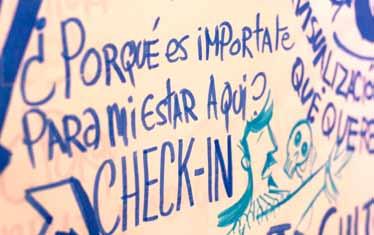 ¿PORQUÉ ES IMPORTATE
PARA MI ESTAR AQUI?
CHECK-IN
VISUALIZACIÓN
QUE QUERE
CULT